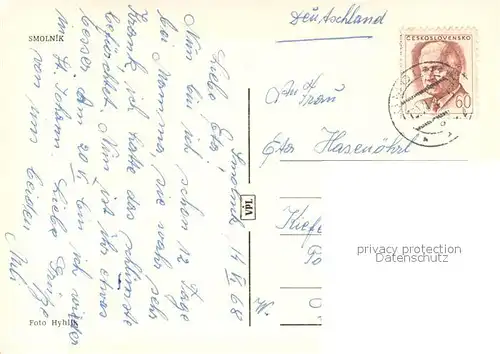 SMOLNÍK
Deutschland
ČESKOSLOVENSKO
60
Smolnik 14 68
Liebe Eta,
Nun bin ich schon 12 Tage
bei Mamma, sie war sehr
krank, ich hatte das schlimmste
befürchtet. Nun ist ihr etwas
besser. Am 20 bin ich wieder
in St. Johann. Liebe Grüße
von uns beiden
An Frau
Eta Hasenöhrl
Kiefe
VPL
privacy protection
Datenschutz
Foto Hyhlík